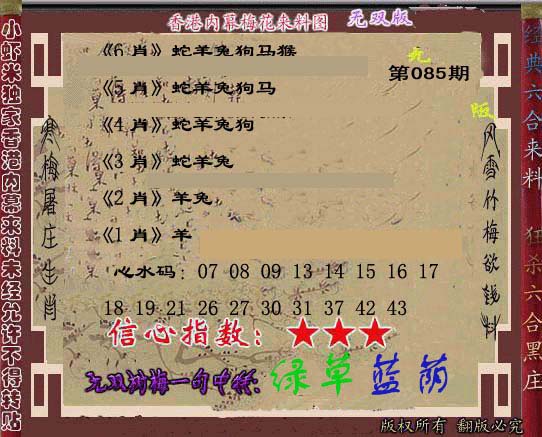 香港内幕梅花来料图 无双版
《6 肖》蛇羊兔狗马猴
第085期
《5 肖》蛇羊兔狗马
《4 肖》蛇羊兔狗
《3 肖》蛇羊兔
《2 肖》羊兔
《1 肖》羊
心水码：07 08 09 13 14 15 16 17
18 19 21 26 27 30 31 37 42 43
信心指数：★★★
绿草蓝荫
版权所有 翻版必究
小虾米独家香港内幕来料未经允许不得转贴
寒梅屠庄生肖
风雪竹梅欲钱料
经典六合来料
狂杀六合黑庄